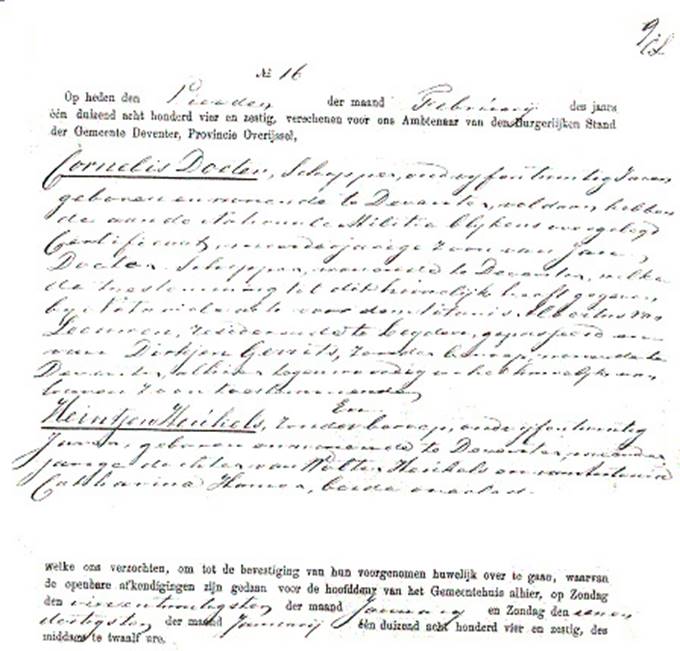 № 16
Op heden den Vierden der maand Februarij des jaars
één duizend acht honderd vier en zestig, verschenen voor ons Ambtenaar van den Burgerlijken Stand
der Gemeente Deventer, Provincie Overijssel,
Cornelis Docter, Schipper, oud vijf en twintig Jaren
geboren en wonende te Deventer, voldaan hebbende
de aan de Nationale Militie blijkens overgelegd
Certificaat, meerderjarige zoon van Jan
Docter Schipper, wonende te Deventer, welke
de toestemming tot dit huwelijk heeft gegeven
bij Notariele acte voor den Notaris Albertus van
Leeuwen, resideerende te Leyden, gepasseerd en
van Dirkjen Gerrits, zonder beroep, wonende te
Deventer, alhier tegenwoordig en het huwelijk van
haren zoon toestemmende
En
Heintjen Heukels, zonder beroep, oud vijf en twintig
Jaren, geboren en wonende te Deventer, meerder
jarige dochter van Wolter Heukels en van Antonia
Catharina, beide overled.
welke ons verzochten, om tot de bevestiging van hun voorgenomen huwelijk over te gaan, waarvan
de openbare afkondigingen zijn gedaan voor de hoofddeur van het Gemeentehuis alhier, op Zondag
den vierentwintigsten der maand Januarij en Zondag den eenen
dertigsten der maand Januarij één duizend acht honderd vier en zestig, des
middags te twaalf ure.